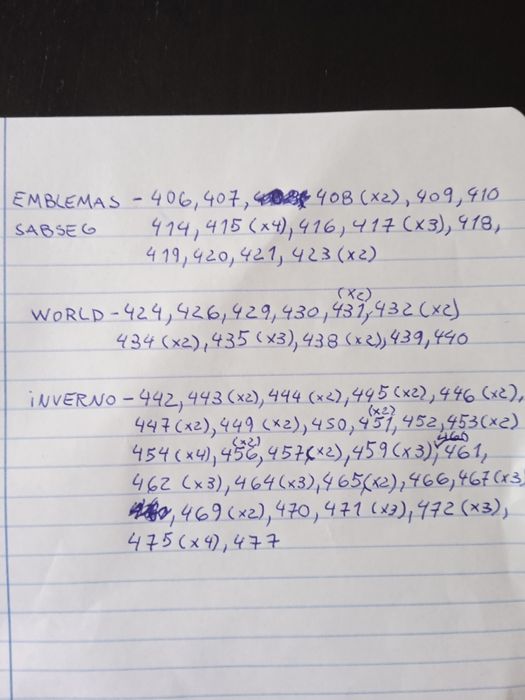 EMBLEMAS - 406, 407, 408 (x2), 409, 410
SABSEG 414, 415 (x4), 416, 417 (x3), 418,
419, 420, 421, 423 (x2)
(x2)
WORLD - 424, 426, 429, 430, 431, 432 (x2)
434 (x2), 435 (x3), 438 (x2), 439, 440
iNVERNO - 442, 443 (x2), 444 (x2), 445 (x2), 446 (x2),
(x2)
447 (x2), 449 (x2), 450, 451, 452, 453 (x2)
(x2) 460
454 (x4), 456, 457 (x2), 459 (x3), 461,
462 (x3), 464 (x3), 465 (x2), 466, 467 (x3)
, 469 (x2), 470, 471 (x3), 472 (x3),
475 (x4), 477